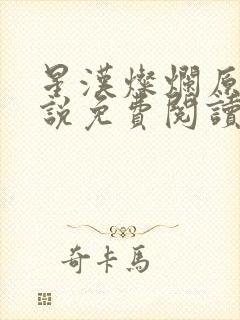 星漢燦爛原
說免費閱讀
奇卡馬